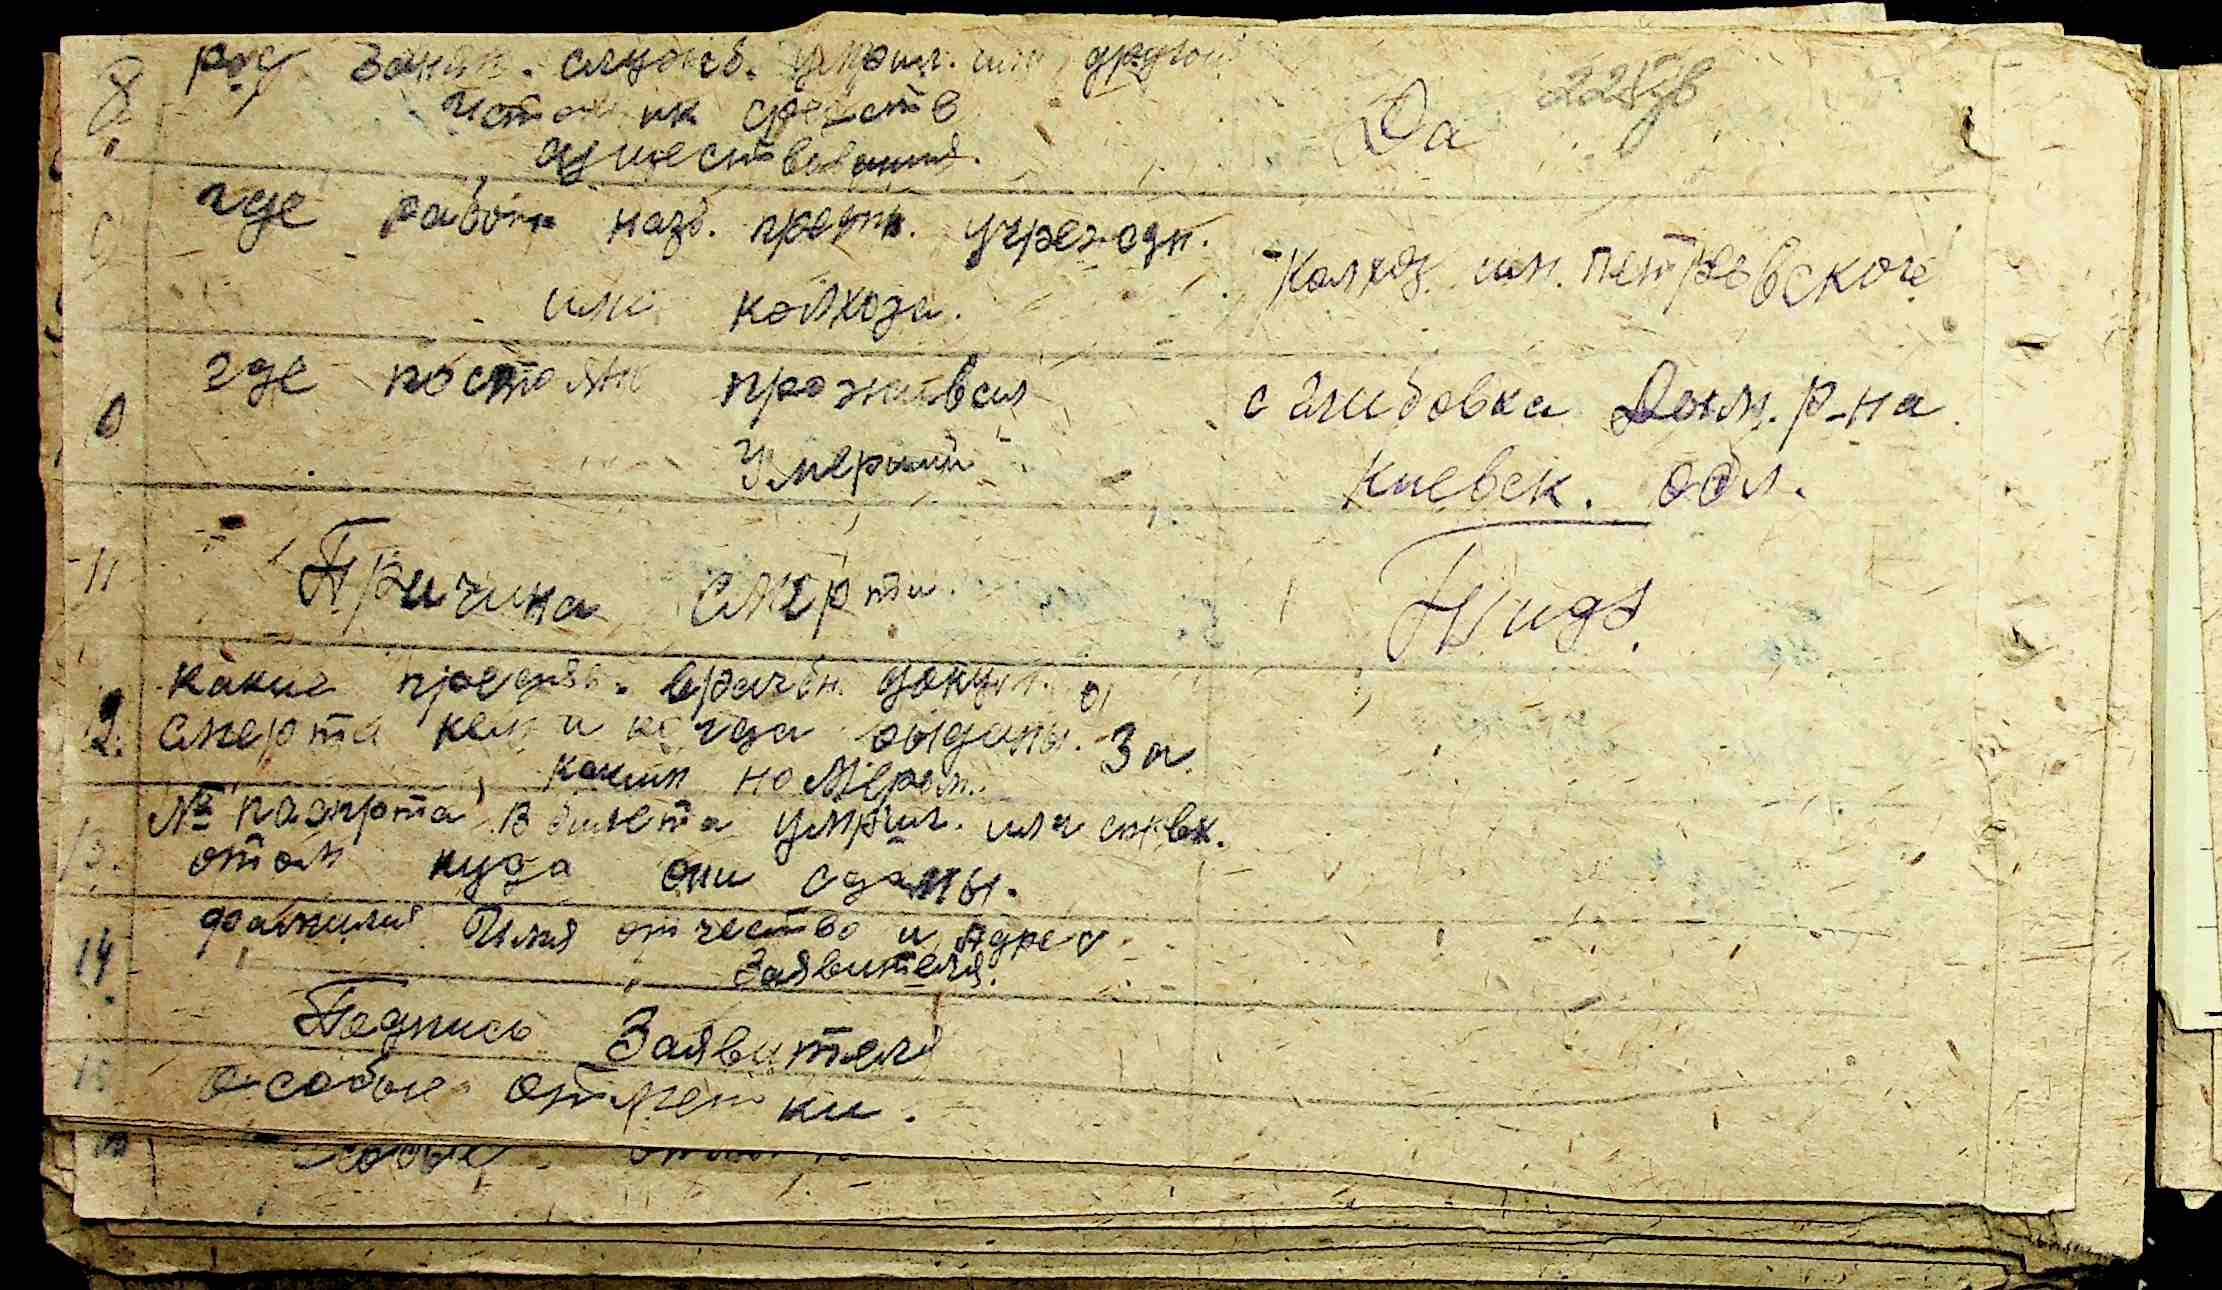 8 род занят. служб. умрш. или другой
источник средств
существования.
Да
где работ. назв. предпр. учрежд.
или колхоза.
Колхоз им. Петровского
10 где постоянно проживал
умерший
с Глибовка Дым. р-на
Киевск. обл.
11 Причина смерти.
12. какие предъяв. врачебн. докум. о
смерти кем и когда выданы. За
каким номером.
13. № паспорта, В билета умрш. или
о том куда они сданы.
14 фамилия Имя отчество и адрес
Заявителя.
Подпись Заявителя
15 особые отметки.